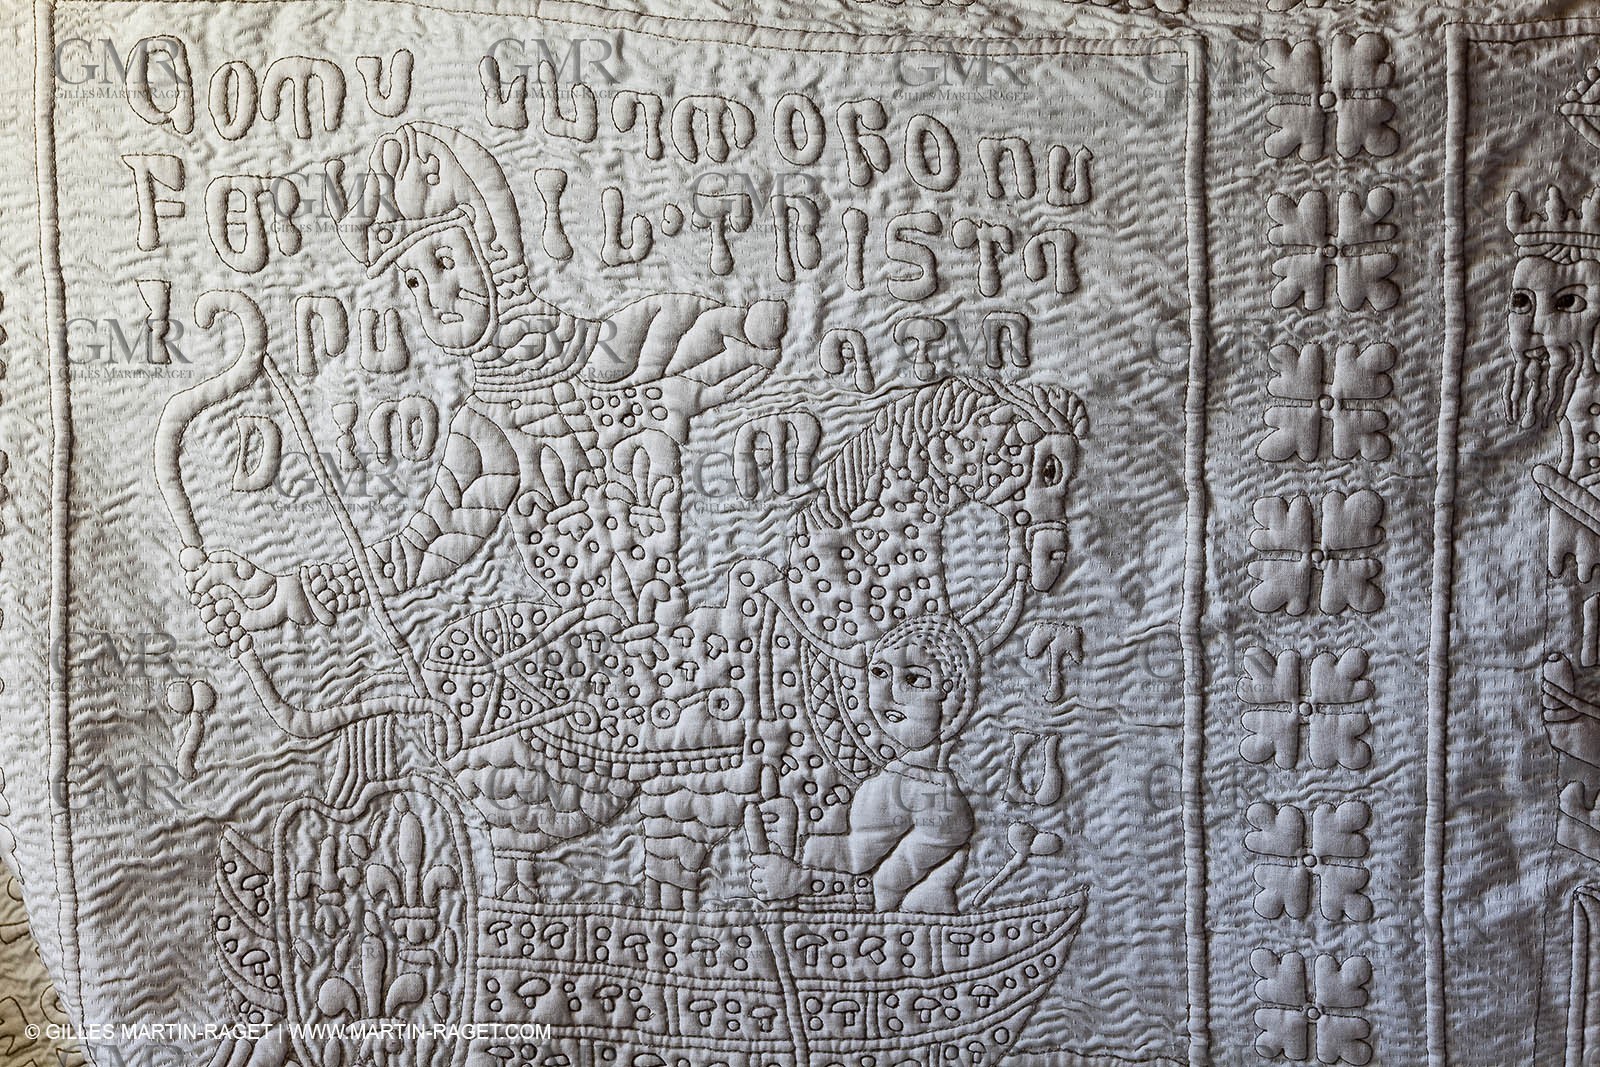 COMU LU AMOROGONU
FERI IL·TRISTA
INU A TR
DIM
T
U
GMR
GILLES MARTIN-RAGET
© GILLES MARTIN-RAGET | WWW.MARTIN-RAGET.COM